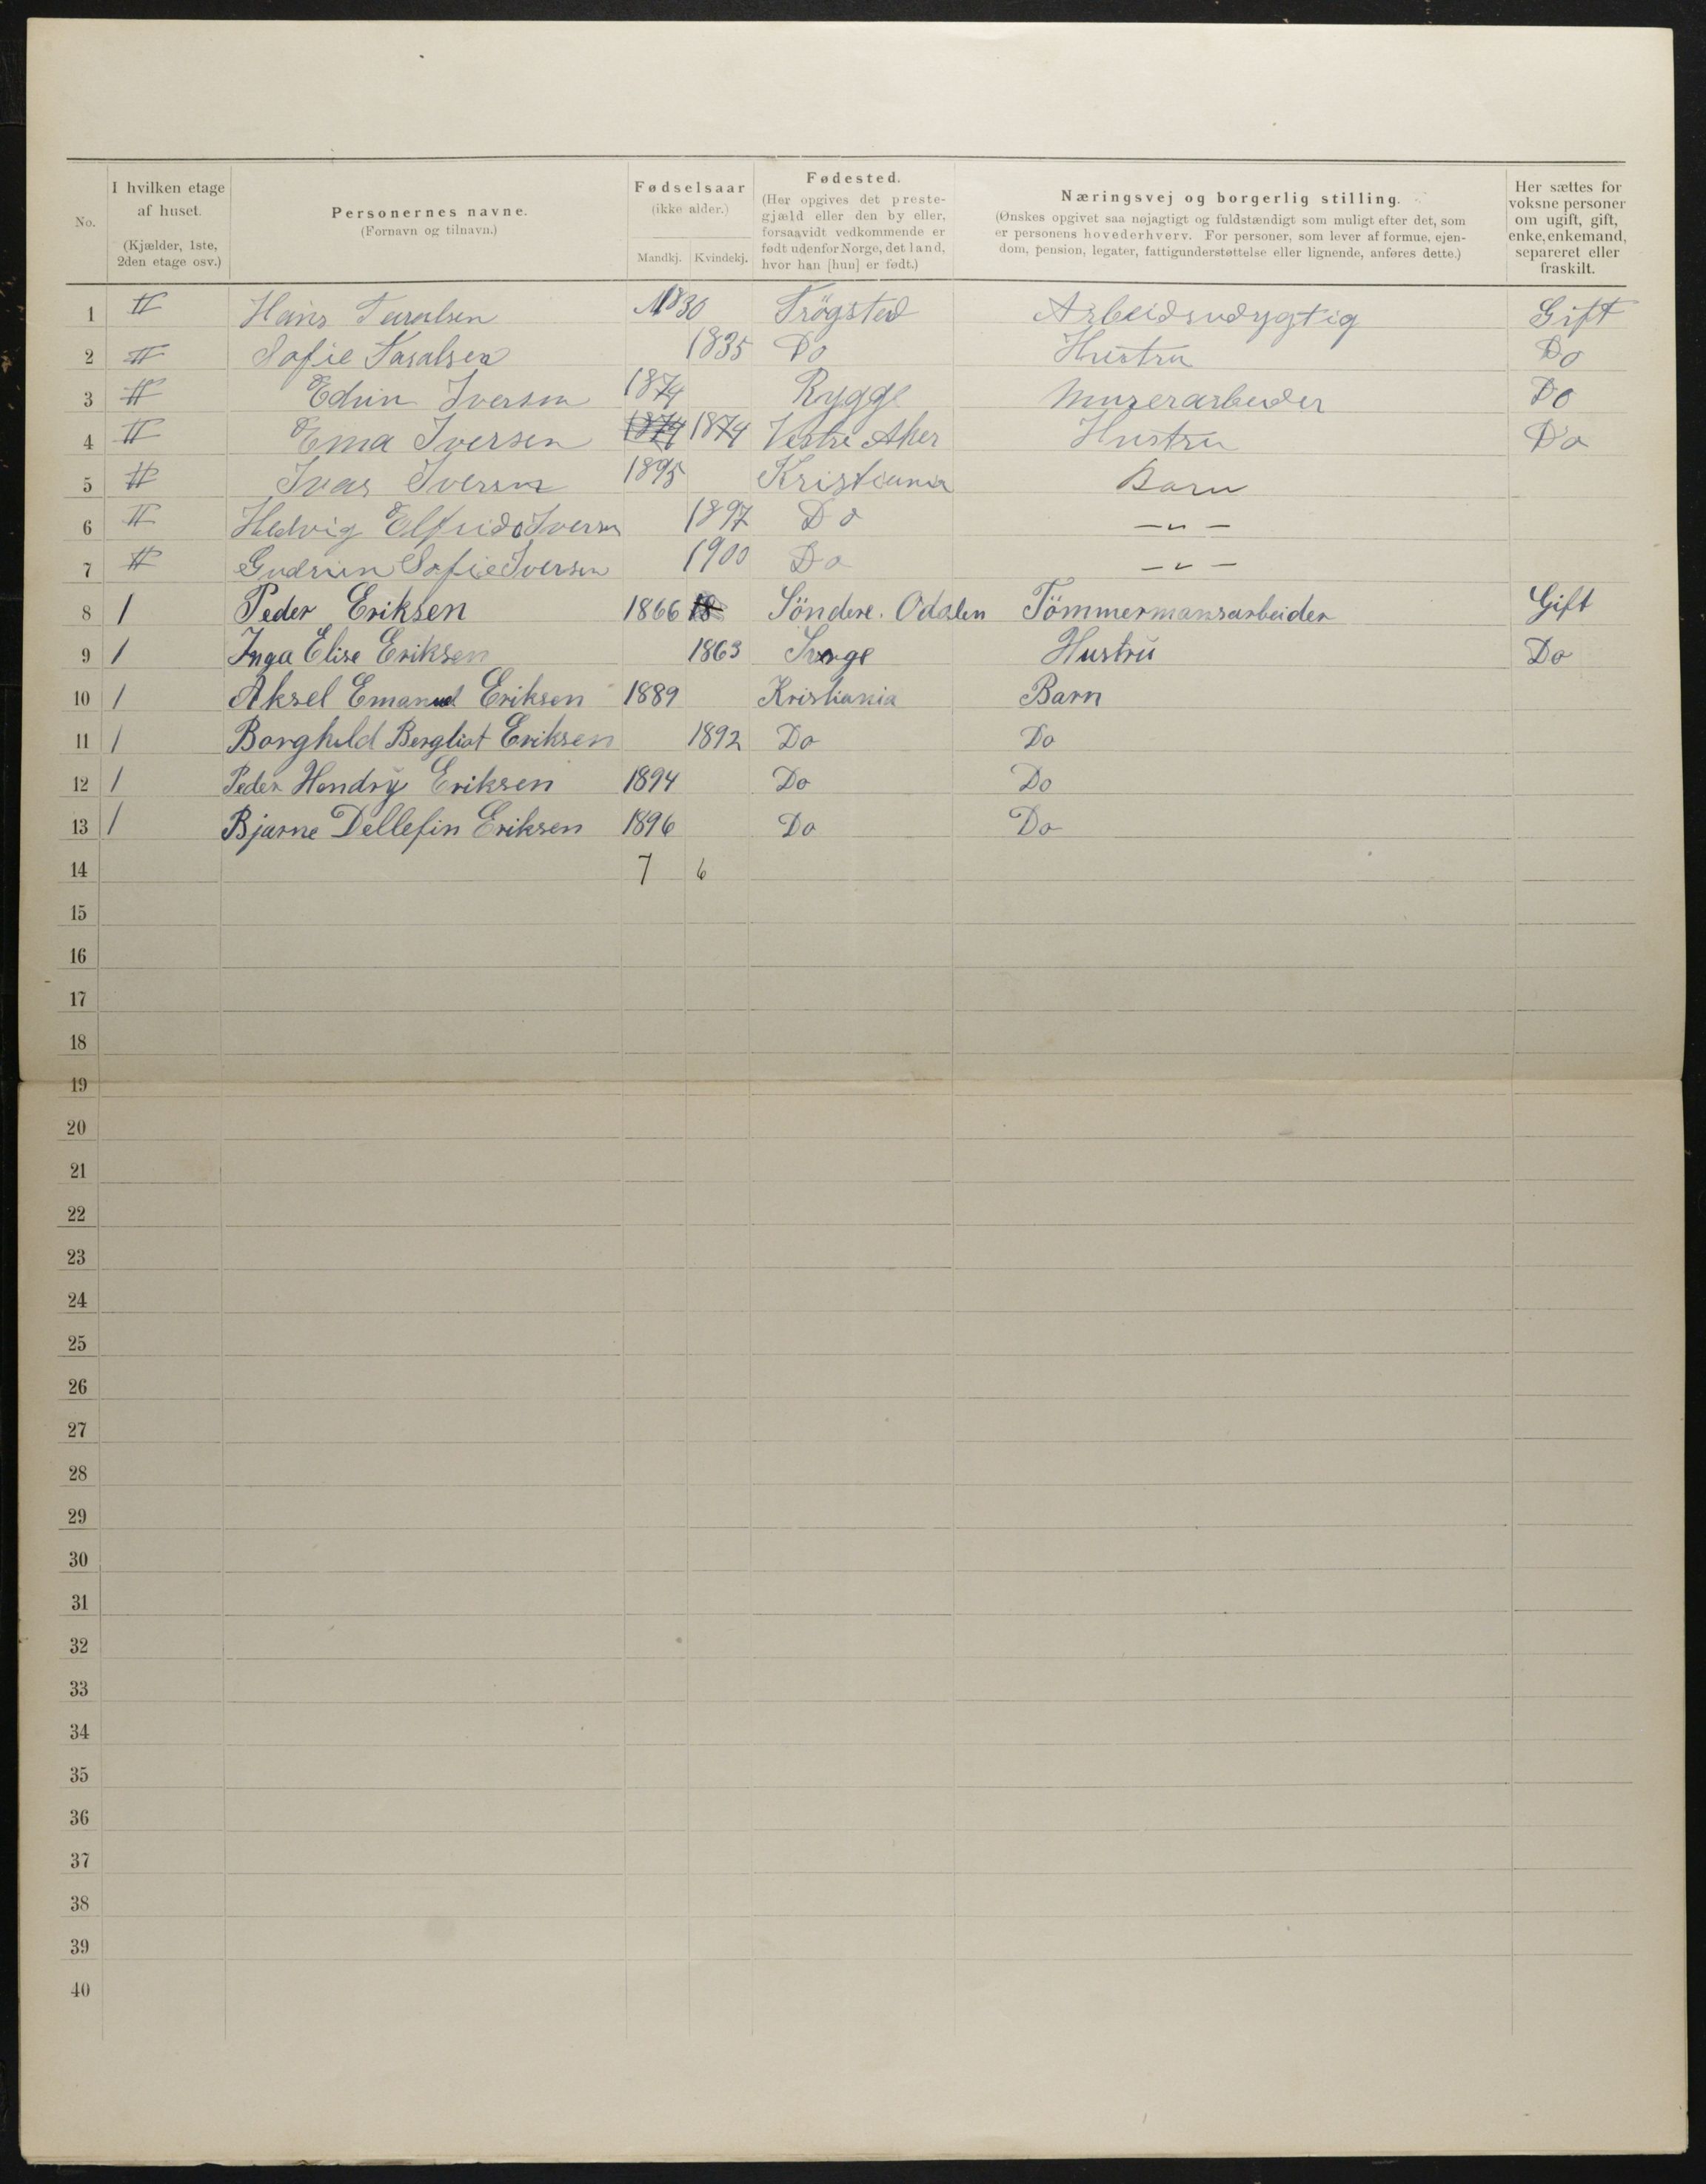 No. I hvilken etage af huset. (Kjælder, 1ste, 2den etage osv.) Personernes navne. (Fornavn og tilnavn.) Fødselsaar (ikke alder.) Mandkj. Kvindekj. Fødested. (Her opgives det prestegjæld eller den by eller, forsaavidt vedkommende er født udenfor Norge, det land, hvor han [hun] er født.) Næringsvej og borgerlig stilling. (Ønskes opgivet saa nøjagtigt og fuldstændigt som muligt efter det, som er personens hovederhverv. For personer, som lever af formue, ejendom, pension, legater, fattigunderstøttelse eller lignende, anføres dette.) Her sættes for voksne personer om ugift, gift, enke, enkemand, separeret eller fraskilt.
1 II Hans 1830 Trögsted Arbeidsudygtig Gift
2 II Sofie 1835 Do Hustru Do
3 II Edvin Iversen 1874 Rygge Murerarbeider Do
4 II Ema Iversen 1874 1874 Vestre Aker Hustru Do
5 II Ivar Iversen 1895 Kristiania Barn
6 II Hedvig Elfrida Iversen 1897 Do — " —
7 II Gudrun Sofie Iversen 1900 Do — " —
8 1 Peder Eriksen 1866 18 Söndere. Odalen Tömmermansarbeider Gift
9 1 Inga Elise Eriksen 1863 Hustru Do
10 1 Aksel Emanuel Eriksen 1889 Kristiania Barn
11 1 Borghild Bergliot Eriksen 1892 Do Do
12 1 Peder Hendry Eriksen 1894 Do Do
13 1 Bjarne Dellefin Eriksen 1896 Do Do
14 7 6
15
16
17
18
19
20
21
22
23
24
25
26
27
28
29
30
31
32
33
34
35
36
37
38
39
40